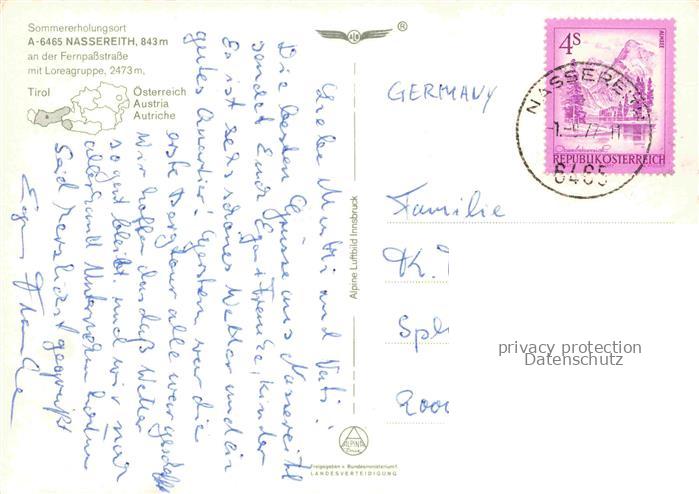 Sommererholungsort
A-6465 NASSEREITH, 843 m
an der Fernpaßstraße
mit Loreagruppe, 2473 m,
Tirol
Österreich
Austria
Autriche
®
Liebe Mutti und Vati!
Die besten Grüsse aus Nassereith
sendet Euch Egon + Frauke, Kinder
Es ist sehr schönes Wetter und ein
gutes Quartier! Gestern war die
erste Bergtour alle war geschafft
Wir hoffen das daß Wetter
so gut bleibt. und wir noch
allerhand Unternehmen können
Seid herzlichst gegrüßt
Egon Frauke
Alpine Luftbild Innsbruck
ALPINA
Freigegeben v. Bundesministerium f.
LANDESVERTEIDIGUNG
GERMANY
4S
ALMSEE
REPUBLIK ÖSTERREICH
NASSEREITH
6465
Familie
K.
Spl
2000
privacy protection
Datenschutz